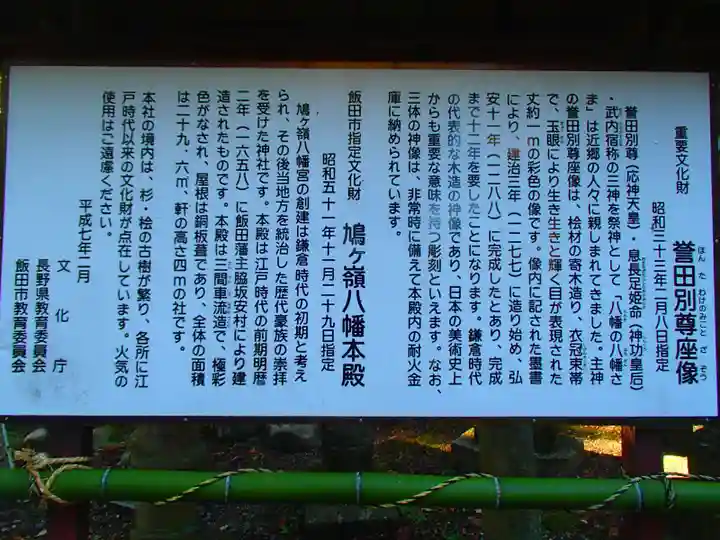 重要文化財
誉田別尊座像
ほんたわけのみことざぞう
昭和三十三年二月八日指定
誉田別尊(応神天皇)・息長足姫命(神功皇后)
・武内宿称の三神を祭神として「八幡の八幡さ
ま」は近郷の人々に親しまれてきました。主神
の誉田別尊座像は、桧材の寄木造り、衣冠束帯
で、玉眼により生き生きと輝く目が表現された
丈約一mの彩色の像です。像内に記された墨書
により、建治三年(一二七七)に造り始め、弘
安十一年(一二八八)に完成したとあり、完成
まで十二年を要したことになります。鎌倉時代
の代表的な木造の神像であり、日本の美術史上
からも重要な意味を持つ彫刻といえます。なお、
三体の神像は、非常時に備えて本殿内の耐火金
庫に納められています。
飯田市指定文化財
鳩ヶ嶺八幡本殿
昭和五十一年十一月二十九日指定
鳩ヶ嶺八幡宮の創建は鎌倉時代の初期と考え
られ、その後当地方を統治した歴代豪族の崇拝
を受けた神社です。本殿は江戸時代の前期明暦
二年(一六五八)に飯田藩主脇坂安村により建
造されたものです。本殿は三間車流造で、極彩
色がなされ、屋根は銅板葺であり、全体の面積
は二十九・六㎡、軒の高さ四mの社です。
本社の境内は、杉・桧の古樹が繁り、各所に江
戸時代以来の文化財が点在しています。火気の
使用はご遠慮ください。
平成七年二月
文化庁
長野県教育委員会
飯田市教育委員会